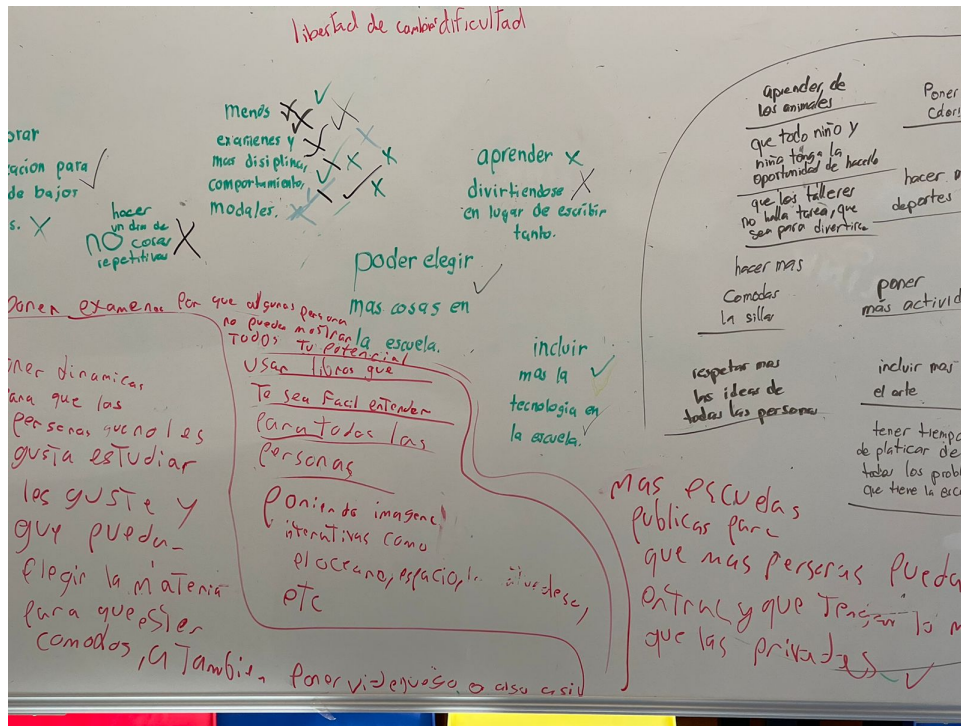 libertad de cambiar dificultad
orar
acion para
de bajos
s.
hacer
un dia de
no cosas
repetitivas
menos
examenes y
mas disiplina,
comportamiento,
modales.
aprender
divirtiendose
en lugar de escribir
tanto.
poder elegir
mas cosas en
la escuela.
incluir
mas la
tecnologia en
la escuela.
aprender de
los animales
que todo niño y
niña tenga la
oportunidad de hacerlo
que los talleres
no halla tarea, que
sea para divertirse
hacer mas
Comodas
la silla
respetar mas
las ideas de
todas las personas
Poner
hacer
deportes
poner
más activid
incluir mas
el arte
tener tiempo
de platicar de
todos los probl
que tiene la esc
poner examenes por que algunas persona
no pueden mostrar
TODOS Tu potencial
oner dinamicas
ara que las
personas que no les
gusta estudiar
les guste y
que pueda-
elegir la materia
para que esten
comodos, a Tambien poner videojuego o algo asi
Usar libros que
Te sea Facil entender
para todos las
personas
poniendo imagene
interativas como
el oceano, espacio,
etc
mas escuelas
publicas para
que mas personas pueda
entrar y que Tengan lo m
que las privadas